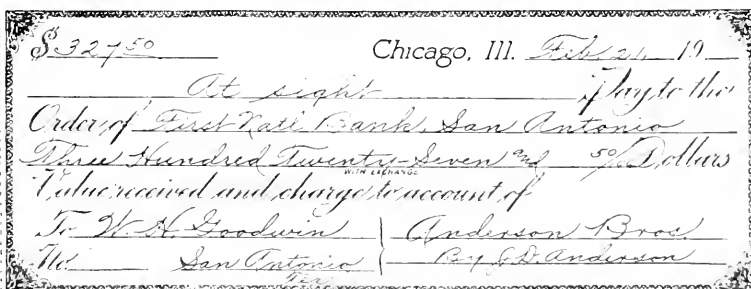 $327 50 Chicago, Ill. Feb. 24, 19
At sight Pay to the
Order of First Natl. Bank, San Antonio
Three Hundred Twenty-Seven and 50/ Dollars
WITH EXCHANGE
Value received and charge to account of
To W. H. Goodwin Anderson Bros.
No San Antonio By J. D. Anderson
Tex.